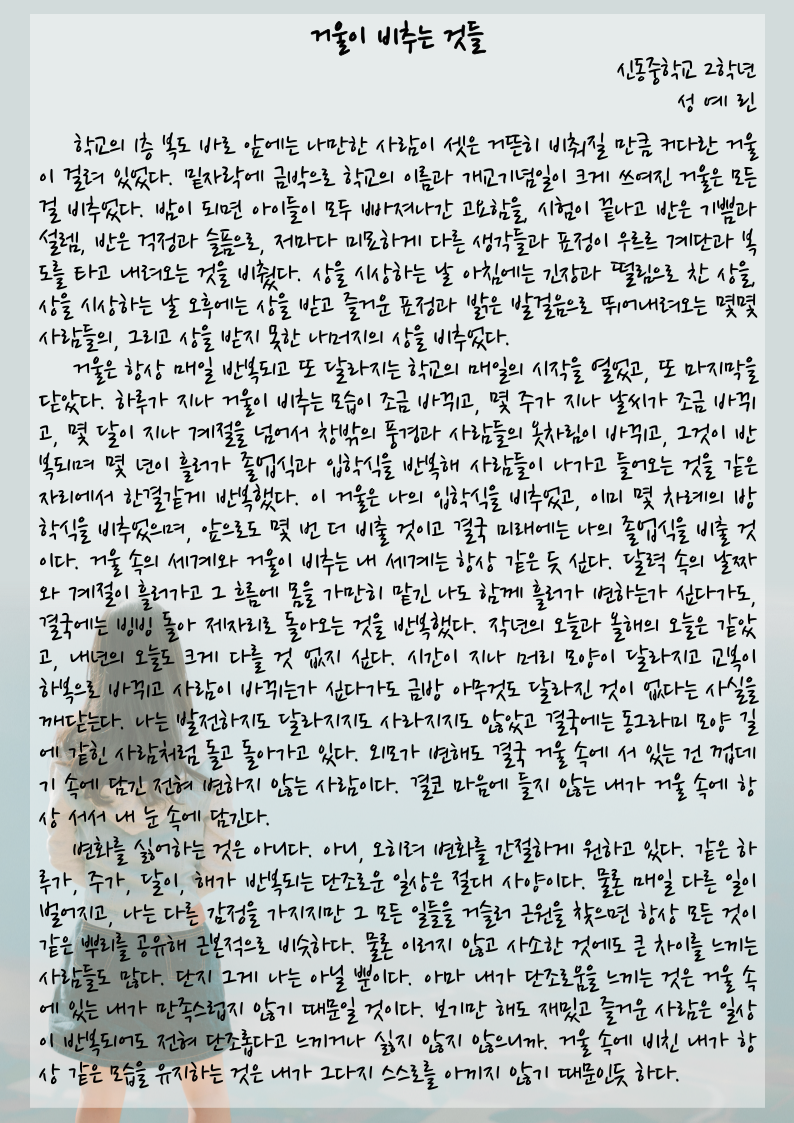 거울이 비추는 것들
신동중학교 2학년
성 예 린
학교의 1층 복도 바로 앞에는 나만한 사람이 셋은 거뜬히 비춰질 만큼 커다란 거울
이 걸려 있었다. 밑자락에 금박으로 학교의 이름과 개교기념일이 크게 쓰여진 거울은 모든
걸 비추었다. 밤이 되면 아이들이 모두 빠져나간 고요함을, 시험이 끝나고 반은 기쁨과
설렘, 반은 걱정과 슬픔으로, 저마다 미묘하게 다른 생각들과 표정이 우르르 계단과 복
도를 타고 내려오는 것을 비췄다. 상을 시상하는 날 아침에는 긴장과 떨림으로 찬 상을,
상을 시상하는 날 오후에는 상을 받고 즐거운 표정과 밝은 발걸음으로 뛰어내려오는 몇몇
사람들의, 그리고 상을 받지 못한 나머지의 상을 비추었다.
거울은 항상 매일 반복되고 또 달라지는 학교의 매일의 시작을 열었고, 또 마지막을
닫았다. 하루가 지나 거울이 비추는 모습이 조금 바뀌고, 몇 주가 지나 날씨가 조금 바뀌
고, 몇 달이 지나 계절을 넘어서 창밖의 풍경과 사람들의 옷차림이 바뀌고, 그것이 반
복되며 몇 년이 흘러가 졸업식과 입학식을 반복해 사람들이 나가고 들어오는 것을 같은
자리에서 한결같게 반복했다. 이 거울은 나의 입학식을 비추었고, 이미 몇 차례의 방
학식을 비추었으며, 앞으로도 몇 번 더 비출 것이고 결국 미래에는 나의 졸업식을 비출 것
이다. 거울 속의 세계와 거울이 비추는 내 세계는 항상 같은 듯 싶다. 달력 속의 날짜
와 계절이 흘러가고 그 흐름에 몸을 가만히 맡긴 나도 함께 흘러가 변하는가 싶다가도,
결국에는 빙빙 돌아 제자리로 돌아오는 것을 반복했다. 작년의 오늘과 올해의 오늘은 같았
고, 내년의 오늘도 크게 다를 것 없지 싶다. 시간이 지나 머리 모양이 달라지고 교복이
하복으로 바뀌고 사람이 바뀌는가 싶다가도 금방 아무것도 달라진 것이 없다는 사실을
깨닫는다. 나는 발전하지도 달라지지도 사라지지도 않았고 결국에는 동그라미 모양 길
에 갇힌 사람처럼 돌고 돌아가고 있다. 외모가 변해도 결국 거울 속에 서 있는 건 껍데
기 속에 담긴 전혀 변하지 않는 사람이다. 결코 마음에 들지 않는 내가 거울 속에 항
상 서서 내 눈 속에 담긴다.
변화를 싫어하는 것은 아니다. 아니, 오히려 변화를 간절하게 원하고 있다. 같은 하
루가, 주가, 달이, 해가 반복되는 단조로운 일상은 절대 사양이다. 물론 매일 다른 일이
벌어지고, 나는 다른 감정을 가지지만 그 모든 일들을 거슬러 근원을 찾으면 항상 모든 것이
같은 뿌리를 공유해 근본적으로 비슷하다. 물론 이러지 않고 사소한 것에도 큰 차이를 느끼는
사람들도 많다. 단지 그게 나는 아닐 뿐이다. 아마 내가 단조로움을 느끼는 것은 거울 속
에 있는 내가 만족스럽지 않기 때문일 것이다. 보기만 해도 재밌고 즐거운 사람은 일상
이 반복되어도 전혀 단조롭다고 느끼거나 싫지 않지 않으니까. 거울 속에 비친 내가 항
상 같은 모습을 유지하는 것은 내가 그다지 스스로를 아끼지 않기 때문인듯 하다.